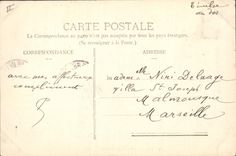 CARTE POSTALE
La Correspondance au recto n'est pas acceptée par tous les pays étrangers.
(Se renseigner à la Poste.)
CORRESPONDANCE
ADRESSE
avec mes affectueux
compliments
Nini Delauge
Villa St Joseph
Malmousque
Marseille